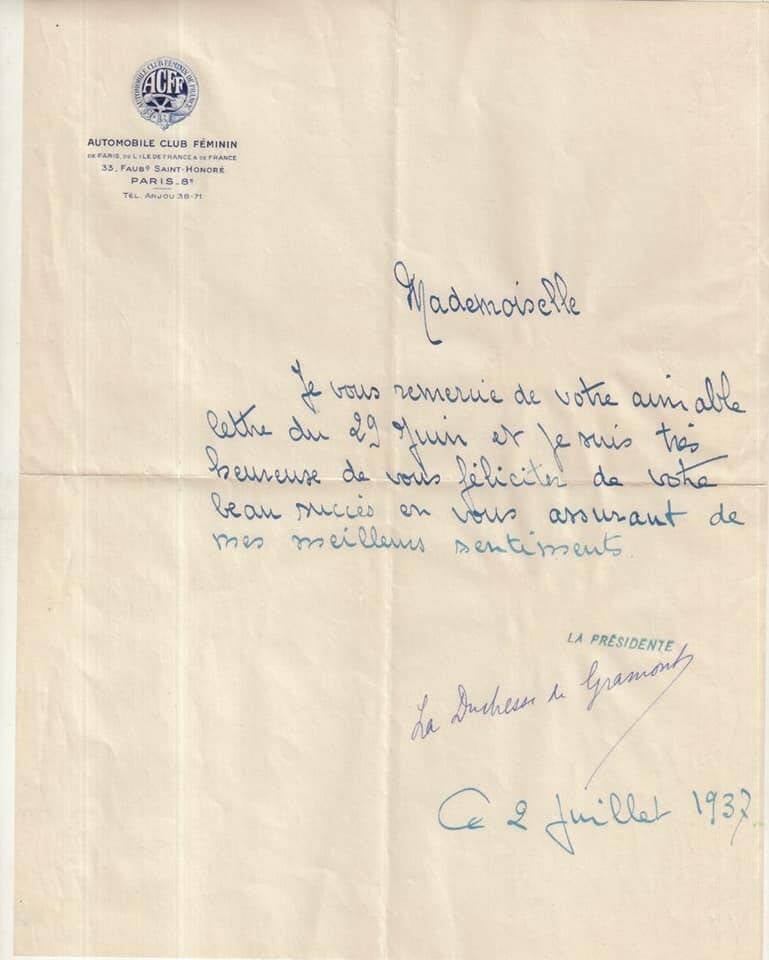 AUTOMOBILE CLUB FÉMININ DE FRANCE
ACFF
AUTOMOBILE CLUB FÉMININ
DE PARIS, DE L'ILE DE FRANCE & DE FRANCE
33, FAUBG SAINT-HONORÉ
PARIS-8E
TÉL. ANJOU 38-71
Mademoiselle
Je vous remercie de votre aimable
lettre du 29 Juin et je suis très
heureuse de vous féliciter de votre
beau succès en vous assurant de
mes meilleurs sentiments.
LA PRÉSIDENTE
La Duchesse de Gramont
Ce 2 Juillet 1937.